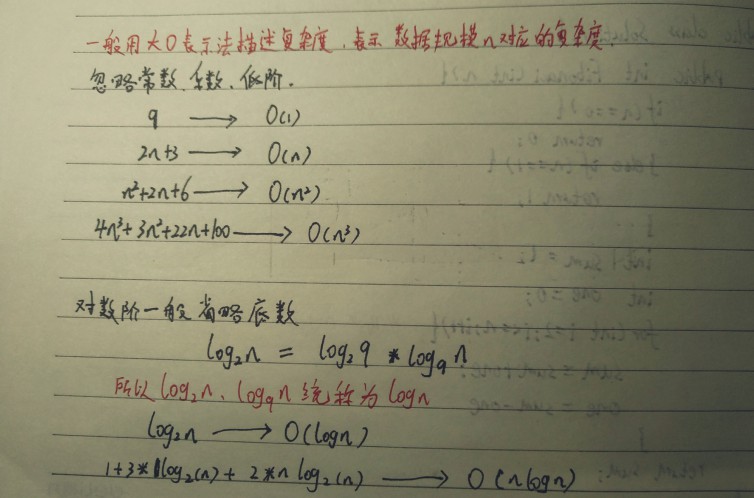 一般用大O表示法描述复杂度,表示数据规模n对应的复杂度.
忽略常数、系数、低阶.
9 → O(1)
2n+3 → O(n)
n²+2n+6 → O(n²)
4n³+3n²+22n+100 → O(n³)
对数阶一般省略底数
log₂n = log₂9 * log₉n
所以 log₂n、log₉n 统称为 logn
log₂n → O(logn)
1+3*log₂(n) + 2*n log₂(n) → O(nlogn)